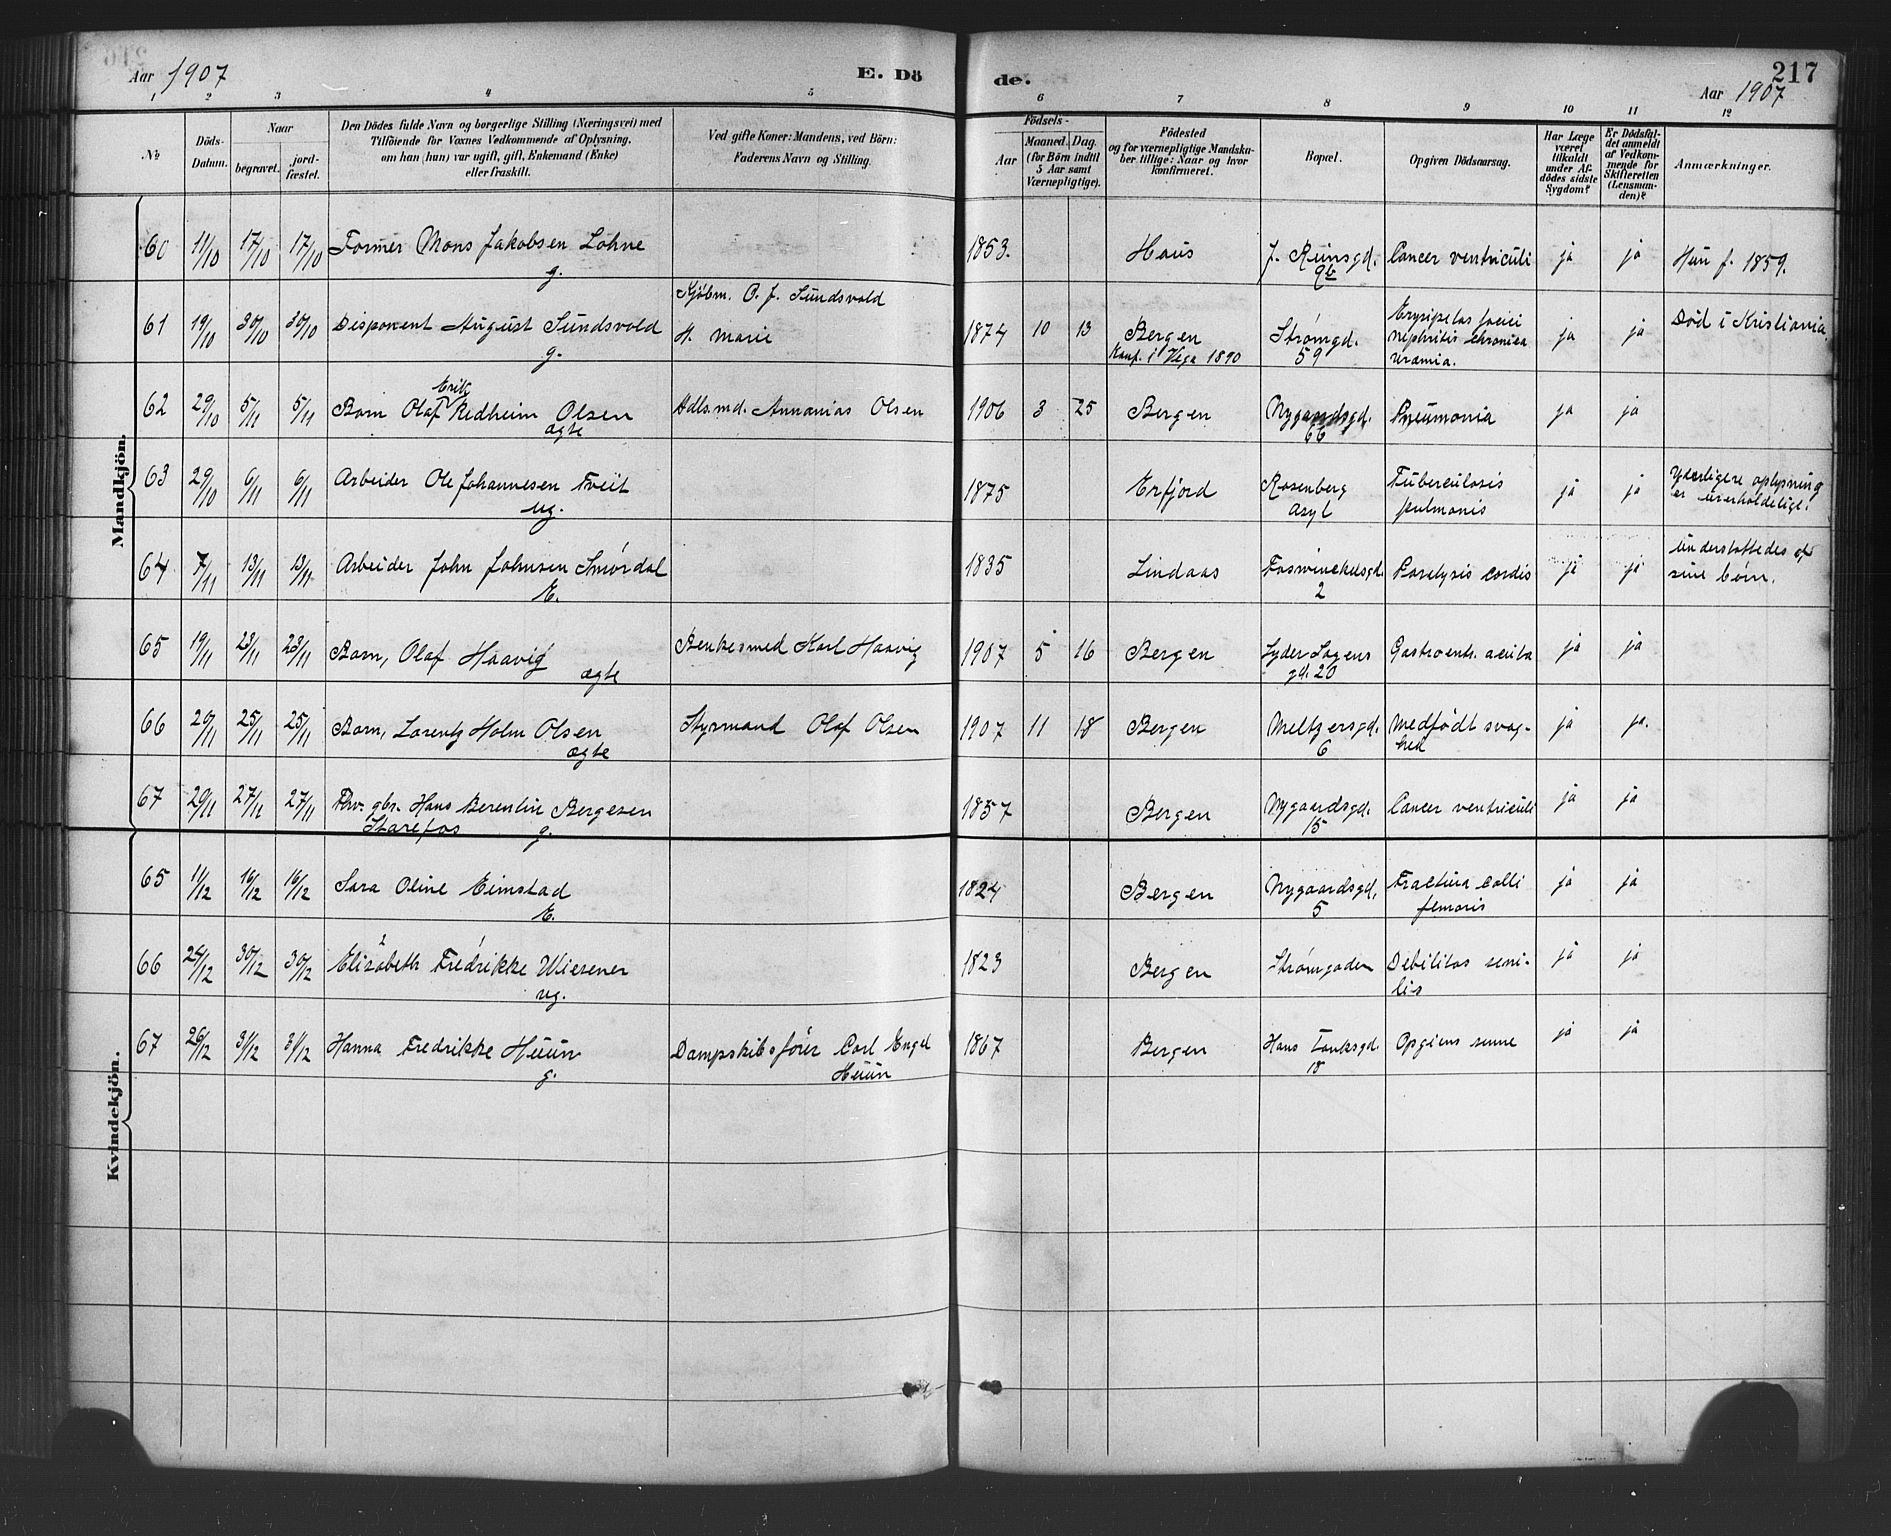 Aar 1907
E. Dö
de.
217
Aar 1907
1 2 3 4 5 6 7 8 9 10 11 12
No
Döds-Datum.
Naar
begravet.
jord-fæstet.
Den Dödes fulde Navn og borgerlige Stilling (Næringsvei) med
Tilföiende for Voxnes Vedkommende af Oplysning,
om han (hun) var ugift, gift, Enkemand (Enke)
eller fraskilt.
Ved gifte Koner: Mandens, ved Börn:
Faderens Navn og Stilling.
Födsels-
Aar
Maaned. Dag.
(for Börn indtil
5 Aar samt
Værnepligtige).
Födested
og for værnepligtige Mandska-
ber tillige: Naar og hvor
konfirmeret.
Bopæl.
Opgiven Dödsaarsag.
Har Læge
været
tilkaldt
under Af-
dödes sidste
Sygdom?
Er Dödsfal-
det anmeldt
af Vedkom-
mende for
Skifteretten
(Lensman-
den)?
Anmærkninger.
Mandkjön.
60 11/10 17/10 17/10 Former Mons Jakobsen Lohne
g.
1853. Haus J. Kunsgd.
9b
Cancer ventriculi ja ja Hun f. 1859.
61 19/10 30/10 30/10 Disponent August Sundsvold
g.
Kjöbm. O. J. Sundsvold
H. Marie
1874 10 13 Bergen
Konf. i Vega 1890
Strømgd.
59
Erysipelas faciei
nephritis chronica
uræmia.
ja ja Död i Kristiania.
62 29/10 5/11 5/11 Barn Olaf Erik Redheim Olsen
ægte
Hdls.md. Annanias Olsen
1906 3 25 Bergen Nygaardsgd.
66
Pneumonia ja ja
63 29/10 6/11 6/11 Arbeider Ole Johannesen Tveit
ug.
1875 Erfjord Rosenberg
Asyl
Tuberculosis
pulmonis
ja ja Yderligere oplysning
er uerholdeligt.
64 7/11 13/11 13/11 Arbeider John Johnsen Smördal
E.
1835 Lindaas Foswinckelsgd.
2
Paralysis cordis ja ja understöttedes af
sine børn.
65 19/11 23/11 23/11 Barn, Olaf Haavig
ægte
Benkesmed Karl Haavig
1907 5 16 Bergen Lyder Sagens
gd. 20
Gastroent. acuta ja ja
66 20/11 25/11 25/11 Barn, Lorentz Holm Olsen
ægte
Styrmand Olaf Olsen
1907 11 18 Bergen Meltzersgd.
6
Medfödt svag-
hed
ja ja.
67 20/11 27/11 27/11 Fhv. gbr. Hans Berentin Bergesen
Starefos g.
1857 Bergen Nygaardsgd.
15
Cancer ventriculi ja ja
Kvindekjön.
65 11/12 16/12 16/12 Sara Oline Eimstad
E.
1824 Bergen Nygaardsgd.
5
Fractura colli
femoris
ja ja
66 24/12 30/12 30/12 Elisabeth Fredrikke Wiesener
ug.
1823 Bergen Strømgaden Debilitas seni-
lis
ja ja
67 26/12 31/12 31/12 Hanna Fredrikke Huun
g.
Dampskibsförer Carl Engel
Huun
1867 Bergen Hans Tanksgd.
18
ja ja